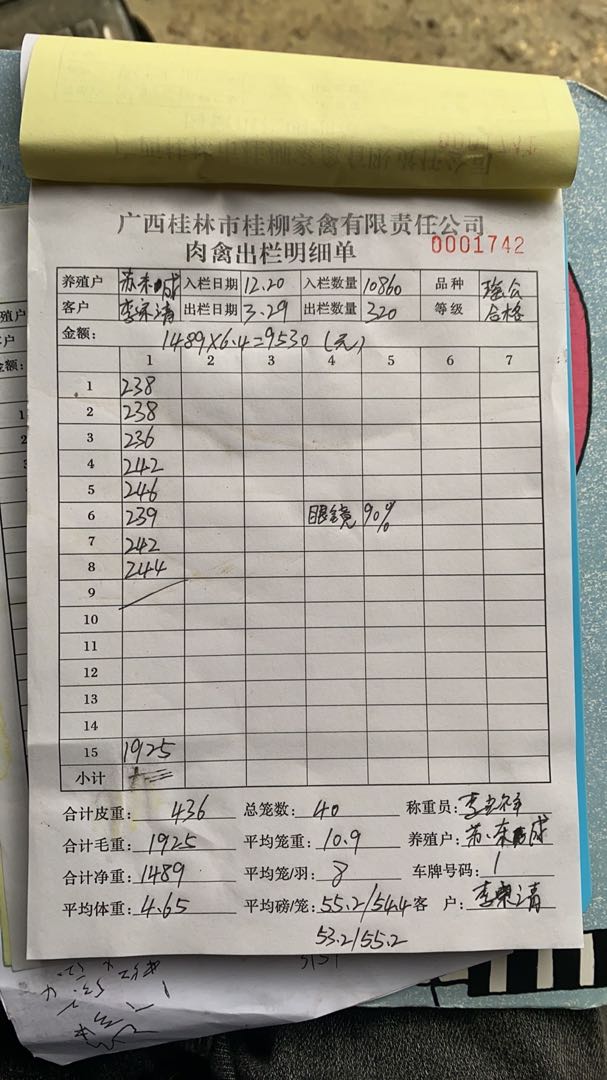 广西桂林市桂柳家禽有限责任公司
肉禽出栏明细单 0001742
养殖户 苏东成 入栏日期 12.20 入栏数量 10860 品种 瑶公
客户 李荣清 出栏日期 3.29 出栏数量 320 等级 合格
金额: 1489×6.4=9530 (元)
1 2 3 4 5 6 7
1 238
2 238
3 236
4 242
5 246
6 239 眼镜 90%
7 242
8 244
9
10
11
12
13
14
15 1925
小计
合计皮重: 436 总笼数: 40 称重员:
合计毛重: 1925 平均笼重: 10.9 养殖户: 苏东成
合计净重: 1489 平均笼/羽: 8 车牌号码: 1
平均体重: 4.65 平均磅/笼: 55.2/54.4 客 户: 李荣清
53.2/55.2